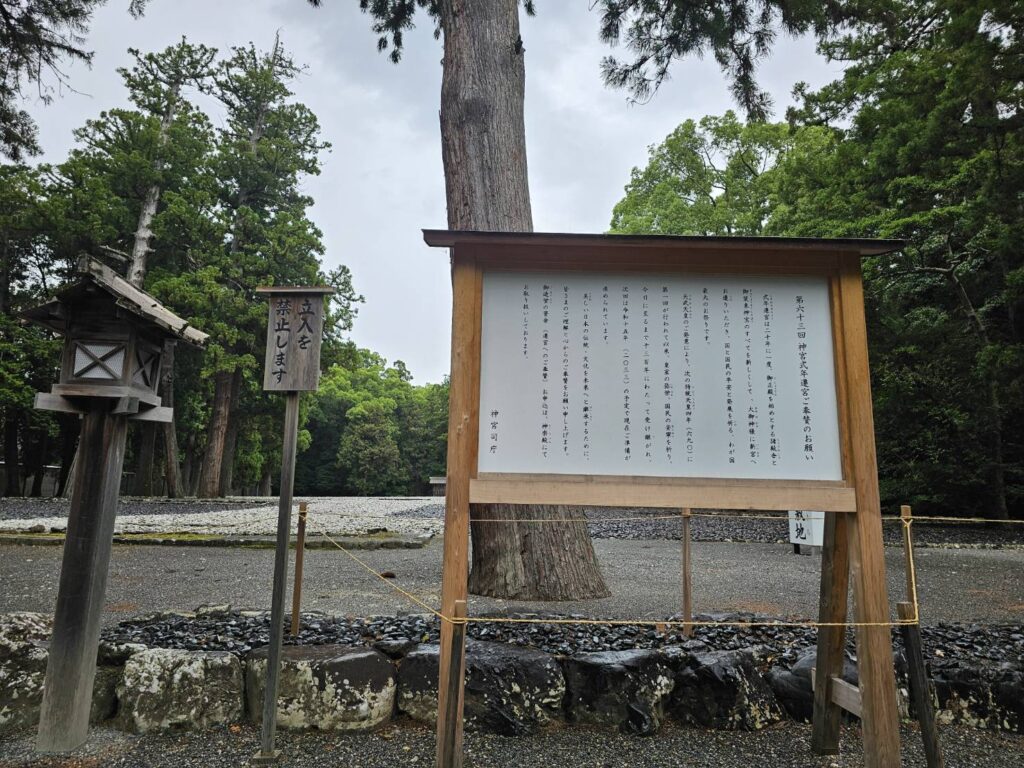 第六十三回 神宮式年遷宮ご奉賛のお願い
式年遷宮は二十年に一度、御正殿を始めとする諸殿舎と
御装束神宝のすべてを新しくして、大御神様に新宮へ
お遷りいただり、国と国民の平安と発展を祈る、わが国
最大のお祭りです。
天武天皇のご発意により、次の持統天皇四年(六九〇)に
第一回が行われて以来、皇室の弥栄、国民の安寧を祈り、
今日に至るまで千三百年にわたって受け継がれ、
次回は令和十五年(二〇三三)の予定で現在ご準備が
進められています。
美しい日本の伝統・文化を未来へと継承するために、
皆さまのご理解と心からのご奉賛をお願い申し上げます。
御造営の資金(遷宮へのご奉献)お申込は、神楽殿にて
お取り扱いしております。
神宮司庁
立入を
禁止します
敷地